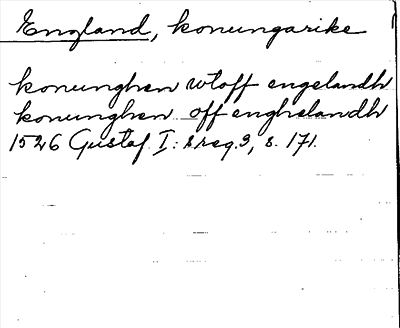 England, konungarike
konunghen wtoff engelandh
konunghen off enghelandh
1526 Gustaf I: s reg. 3, s. 171.